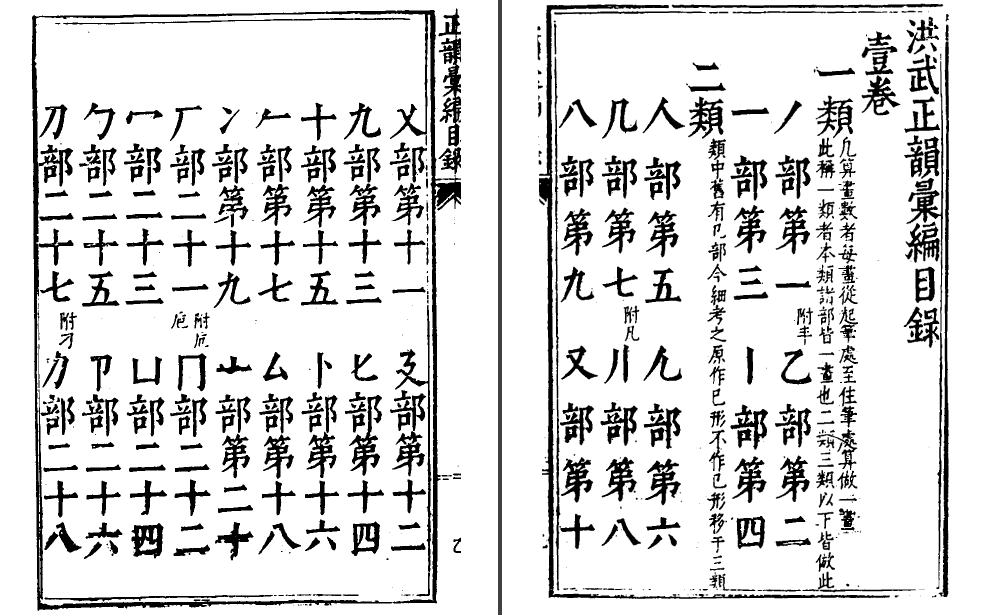 洪武正韻彙編目錄
壹卷
一類
凡算畫數者每畫從起筆處至住筆處算做一畫
此稱一類者本類諸部皆一畫也二類三類以下皆倣此
丿部第一 附丰 乙部第二
一部第三 丨部第四
二類
類中舊有㔾部今細考之原作巳形不作㔾形移于三類
人部第五 部第六
几部第七 附凡 儿部第八
八部第九 又部第十
正韻彙編目錄
乙
乂部第十一 廴部第十二
九部第十三 匕部第十四
十部第十五 卜部第十六
𠂉部第十七 厶部第十八
冫部第十九 亠部第二十
厂部二十一 附 冂部二十二
冖部二十三 凵部二十四
勹部二十五 卩部二十六
刀部二十七 附刁 力部二十八